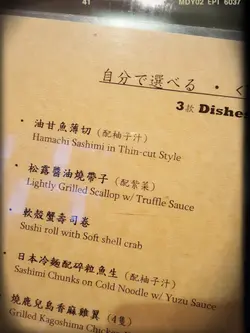 41
MDY02 EPT 6037
自分で選べる ・
3款 Dishe
• 油甘魚薄切 (配柚子汁)
Hamachi Sashimi in Thin-cut Style
• 松露醬油燒帶子 (配紫菜)
Lightly Grilled Scallop w/ Truffle Sauce
• 軟殼蟹壽司卷
Sushi roll with Soft shell crab
• 日本冷麵配碎粒魚生 (配柚子汁)
Sashimi Chunks on Cold Noodle w/ Yuzu Sauce
燒鹿兒島香麻雞翼 (4隻)
Grilled Kagoshima Chicken